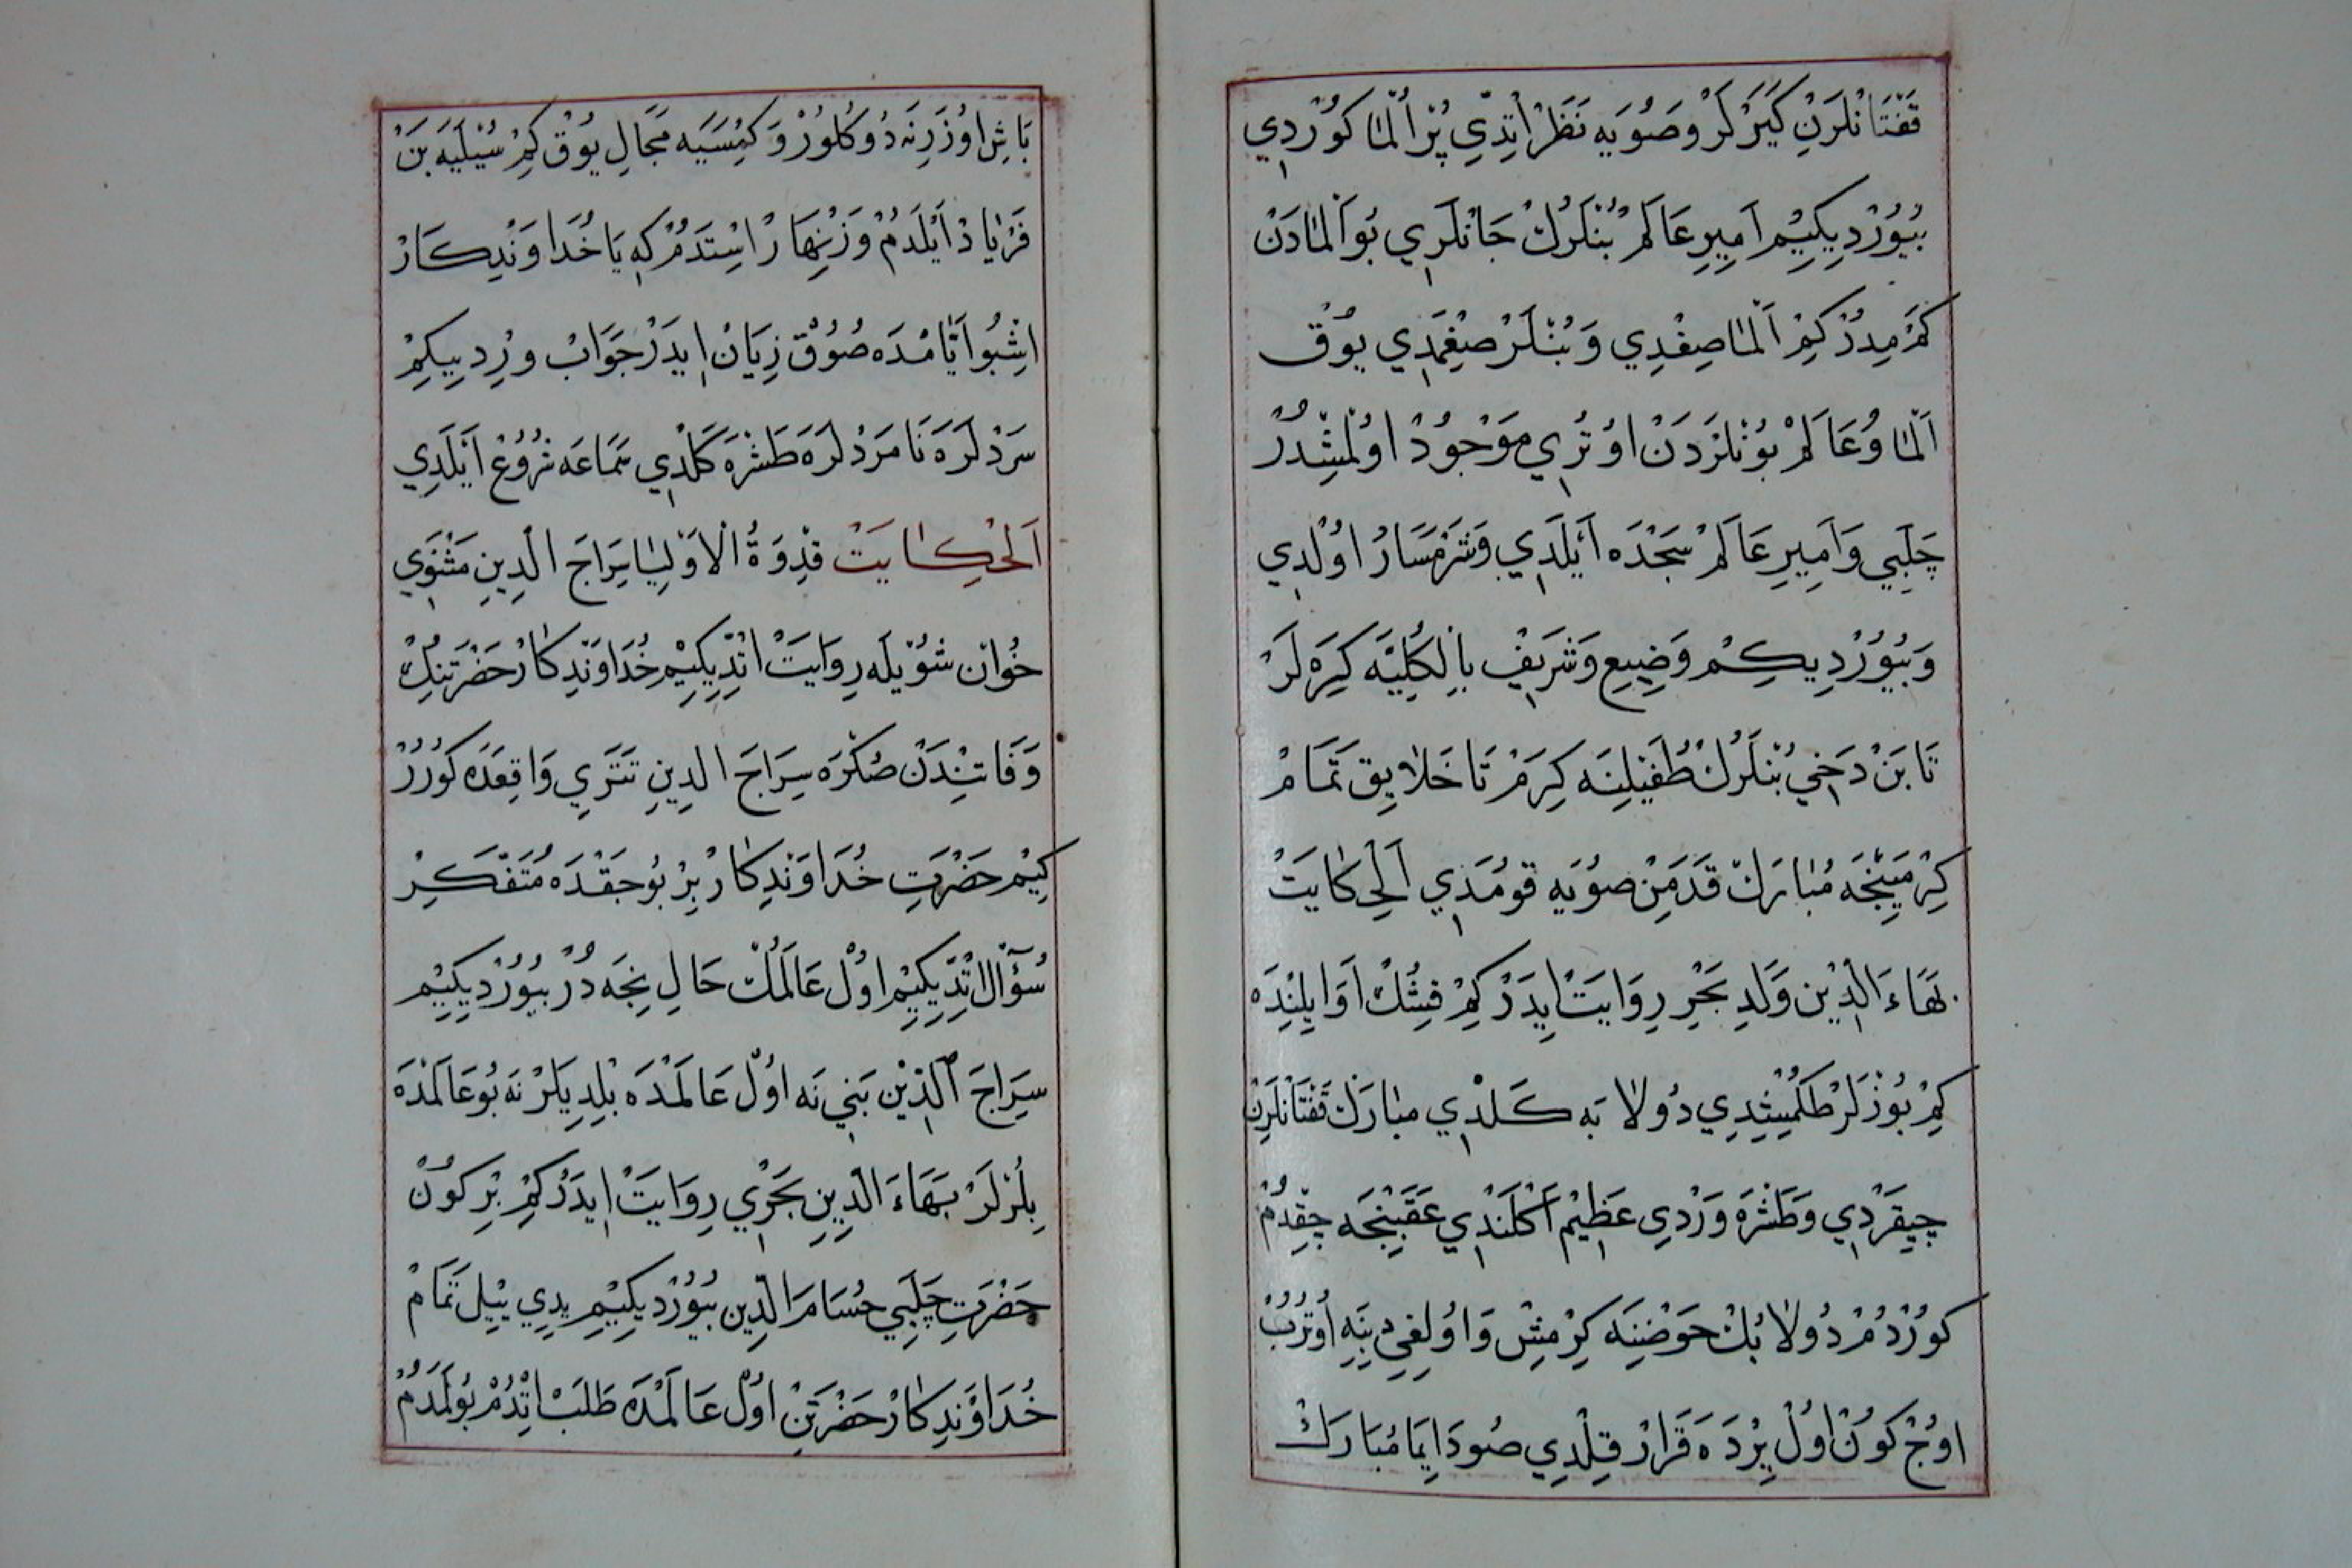 قَفْتَانْلَرِنْ كَيَرْلَرْ وصُويَه نَظَرْ اتِدِّي بُرْ اَلْمَا كُورْدِي
بُيُورْدِيكِيِمْ اَمِيرِ عَالَمْ بُنْلَرُكْ جَانْلَرِي بُو اَلْمَادَنْ
كَمْ مِدُرْ كِمْ اَلْمَا صِغْدِي وَبُنْلَرْ صِغْمَدِي يُوقْ
اَلْمَا وُ عَالَمْ بُونْلَرْدَنْ اوُتْرِي مَوْجُودْ اوُلْمِشْدُرْ
چَلَبِي وَاَمِيرِ عَالَمْ سَجْدَه اَيْلَدِي وَشَرْمَسَارْ اوُلْدِي
وَبُيُورْدِيكِمْ وَضِيعِ وَشَرِيفْ بِالْكُلِيَّه كِيرَه لَرْ
تَا بَنْ دَخِي بُنْلَرُكْ طُفَيْلِنَه كِرَمْ تَا خَلَايِقْ تَمَامْ
كِرْمَيِنْجَه مُبَارَكْ قَدَمِنْ صُويَه قومَدِي اَلْحِكَايَتْ
بَهَاءَ الدِّيْن وَلَدِ بَحْرِي رِوَايَتْ اِيدَرْ كِمْ قِشُكْ اَوَايِلِنْدَه
كِمْ بُوزْلَرْ طَكْمِشْدِي دُولَابَه كَلْدِي مبَارَكْ قَفْتَانْلَرِنْ
چِيقَرْدِي وَطَشْرَه وَرْدِي عَظِيمْ اَكْلَنْدِي عَقَبِنْجَه چِقْدُمْ
كُورْدُمْ دُولَابُكْ حَوْضِنَه كِرْمِشْ وَاوُلِغِي بِنِه اُوتُرُبْ
اوُچْ كُونْ اوُلْ يِرْدَه قَرَارْ قِلْدِي صُودَا اِيمَا مُبَارَكْ
بَاشِ اوُزَرِنَه دُوكُلُورْ وَكِمْسَيَه مَجَالِ يُوقْ كِمْ سُيْلَيَه بَنْ
فَرْيَادْ اَيْلَدُمْ وَزِنْهَارْ اسْتَدُمْ كِه يَا خُدَاوَنْدِكَارْ
اشْبُو اَيَّامْدَه صُوُقْ زِيَانْ اِيدَرْ جَوَابْ ورْدِيكِيمْ
سَرْدْلَرَه نَا مَرْدْلَرَه طَشْرَه كَلْدِي سَمَاعَه شُرُوعْ اَيْلَدِي
اَلْحِكَايَتْ قِدْوَةُ الْاَوْلِيَا سِرَاجَ الدِّينِ مَثْنَوِي
خُوانْ شُوَيْلَه رِوَايَتْ اتْدِيكِيِمْ خُدَاوَنْدِكَارْ حَضْرَتِنُكْ
وَفَاتِنْدَنْ صُكْرَه سِرَاجَ الدِّينِ تَتَرِي وَاقِعَدَه كُورُرْ
كِيِمْ حَضْرَتِ خُدَاوَنْدِكَارْ بِرْ بُوجَقْدَه مُتَفَكِّرْ
سُؤَالْ اتْدِيكِيِمْ اوُلْ عَالَمُكْ حَالِ نِجَه دُرْ بُيُورْدِيكِيِمْ
سِرَاجَ الدِّيْن بَنِي نَه اوُلْ عَالَمْدَه بِلْدِيلَرْ نَه بُو عَالَمْدَه
بِلُرْلَرْ بَهَاءَ الدِّينِ بَحْرِي رِوَايَتْ اِيدَرْ كِمْ بِرْ كُونْ
حَضْرَتِ چَلَبِي حُسَامَ الدِّينْ بُيُورْدِيكِيِمْ يِدِي يِيلْ تَمَامْ
خُدَاوَنْدِكَارْ حَضْرَتِنْ اوُلْ عَالَمْدَه طَلَبْ اتْدُمْ بُولْمَدُمْ